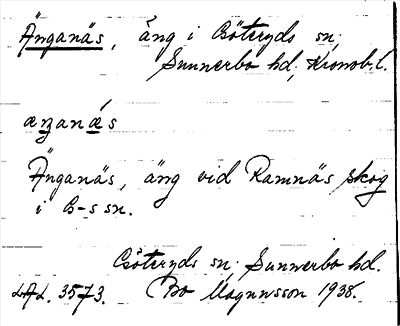 Änganäs, äng i Göteryds sn,
Sunnerbo hd, Kronob. l.
æŋanǽs
Änganäs, äng vid Ramnäs skog
i G-s sn.
Göteryds sn, Sunnerbo hd.
LAL. 3573. Bo Magnusson 1938.